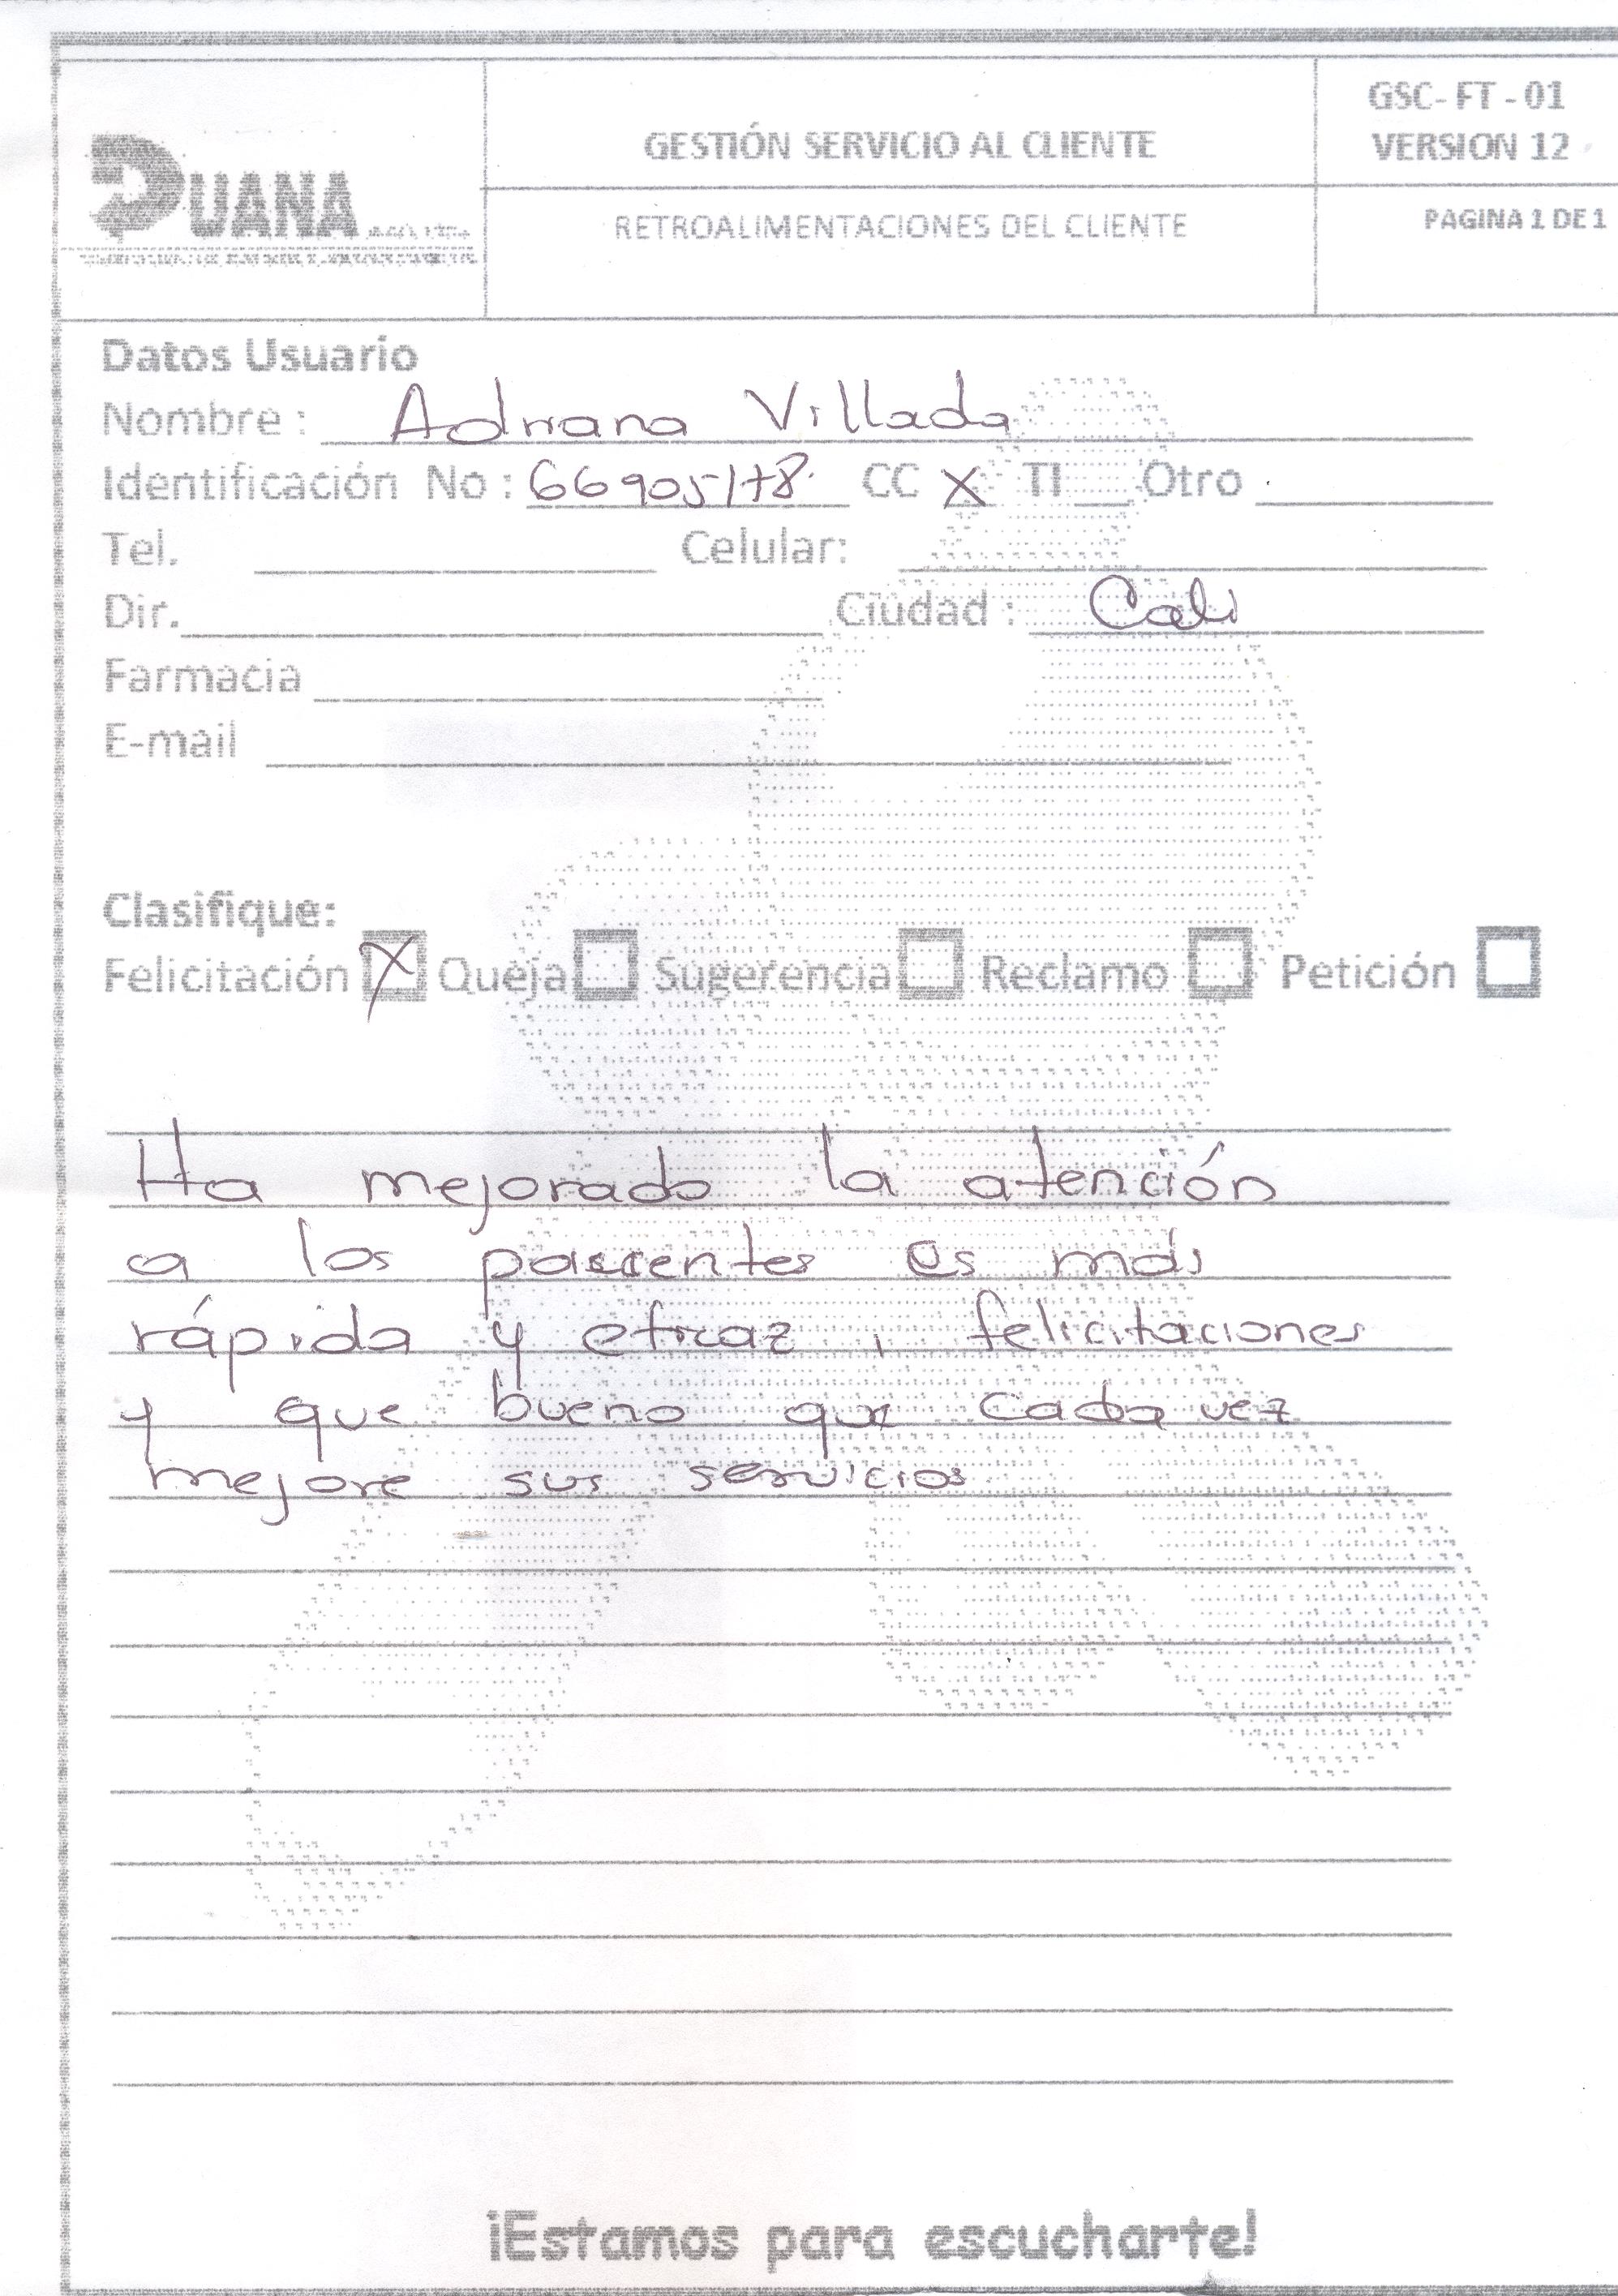 GSC-FT-01
GESTIÓN SERVICIO AL CLIENTE
VERSION 12
DUANA
RETROALIMENTACIONES DEL CLIENTE
PAGINA 1 DE 1
Datos Usuario
Nombre: Adriana Villada
Identificación No: 66905178 CC X TI Otro
Tel. Celular:
Dir. Ciudad: Cali
Farmacia
E-mail
Clasifique:
Felicitación X Queja Sugerencia Reclamo Petición
Ha mejorado la atención
a los pacientes es más
rápida y eficaz, felicitaciones
y que bueno que cada vez
mejore sus servicios
¡Estamos para escucharte!